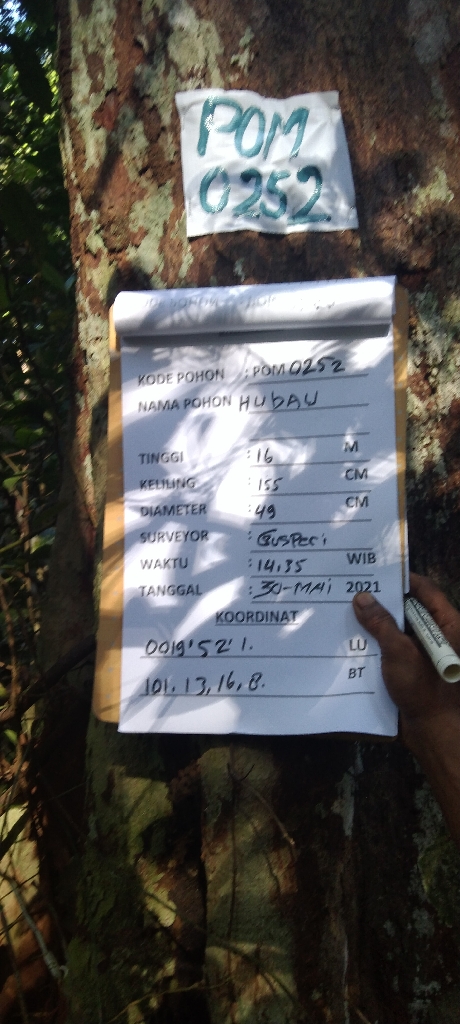 POM
0252
KODE POHON : POM 0252
NAMA POHON HUbAU
TINGGI : 16 M
KELILING : 155 CM
DIAMETER : 49 CM
SURVEYOR : GusPeri
WAKTU : 14,35 WIB
TANGGAL : 30-MAi 2021
KOORDINAT
0019'52'1. LU
101.13,16,8. BT